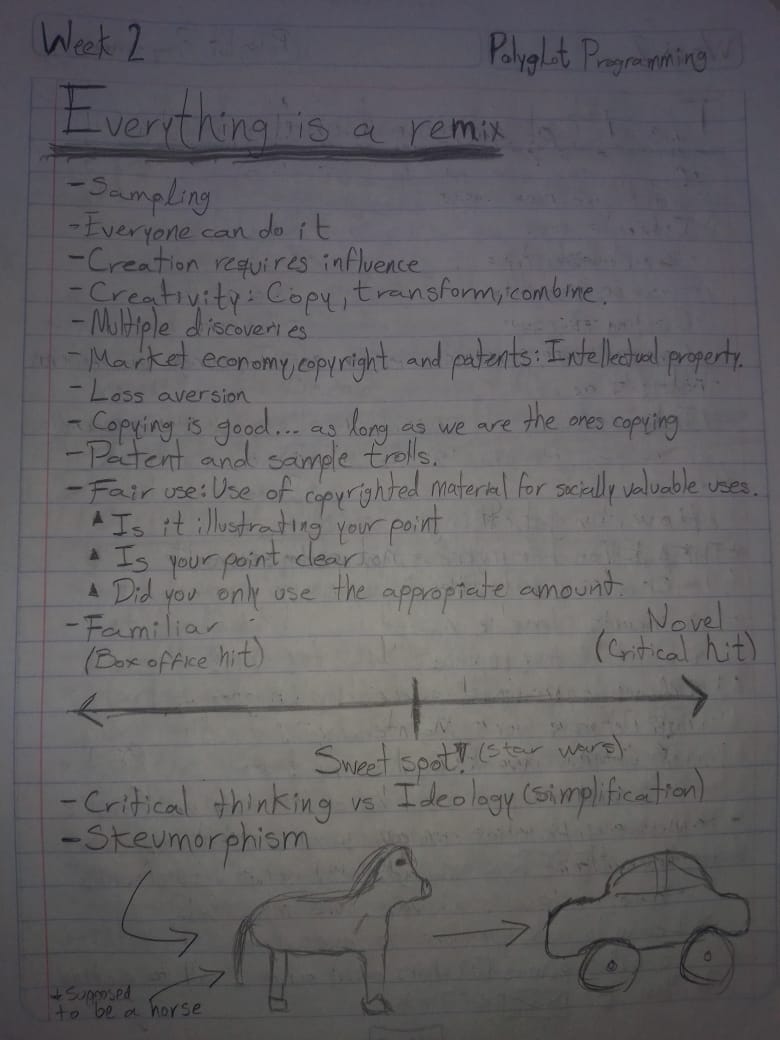 Week 2
Polyglot Programming
Everything is a remix
- Sampling
- Everyone can do it
- Creation requires influence
- Creativity: Copy, transform, combine.
- Multiple discoveries
- Market economy, copyright and patents: Intellectual property.
- Loss aversion
- Copying is good... as long as we are the ones copying
- Patent and sample trolls.
- Fair use: Use of copyrighted material for socially valuable uses.
▲ Is it illustrating your point
▲ Is your point clear
▲ Did you only use the appropiate amount.
- Familiar
Novel
(Box office hit)
(Critical hit)
Sweet spot! (Star wars)
- Critical thinking vs Ideology (simplification)
- Skeumorphism
* Supposed
to be a horse